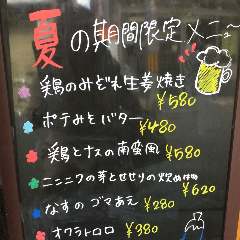 夏の期間限定メニュー
鶏のみぞれ生姜焼き
¥580
ポテみそバター
¥480
鶏とナスの南蛮風
¥580
ニンニクの芽とせせりの炒め
¥620
なすのゴマあえ ¥280
オクラトロロ ¥380